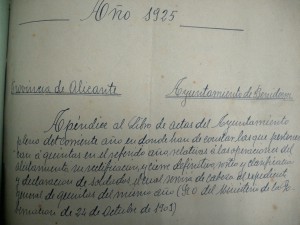 Año 1925
Provincia de Alicante
Ayuntamiento de Benidorm
Apéndice al Libro de actas del Ayuntamiento
pleno del corriente año en donde han de constar, las que pertenez-
can á quintas en el referido año, relativas á las operaciones del
alistamiento, su rectificacion, y cierre definitivo, sorteo y clasificacion
y declaracion de soldados, el cual servirá de cabeza al expediente
general de quintas del mismo año (R.O. del Ministerio de la Go-
bernacion de 24 de Octubre de 1901)